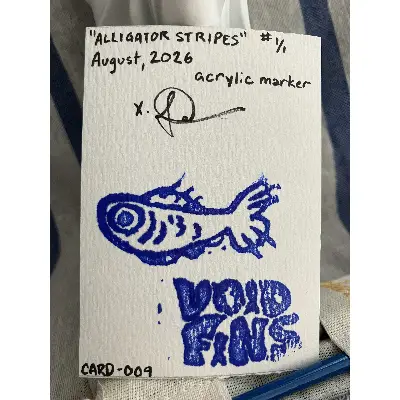 "ALLIGATOR STRIPES" # 1/1
August, 2026
acrylic marker
x.
VOID
FiNS
CARD-009